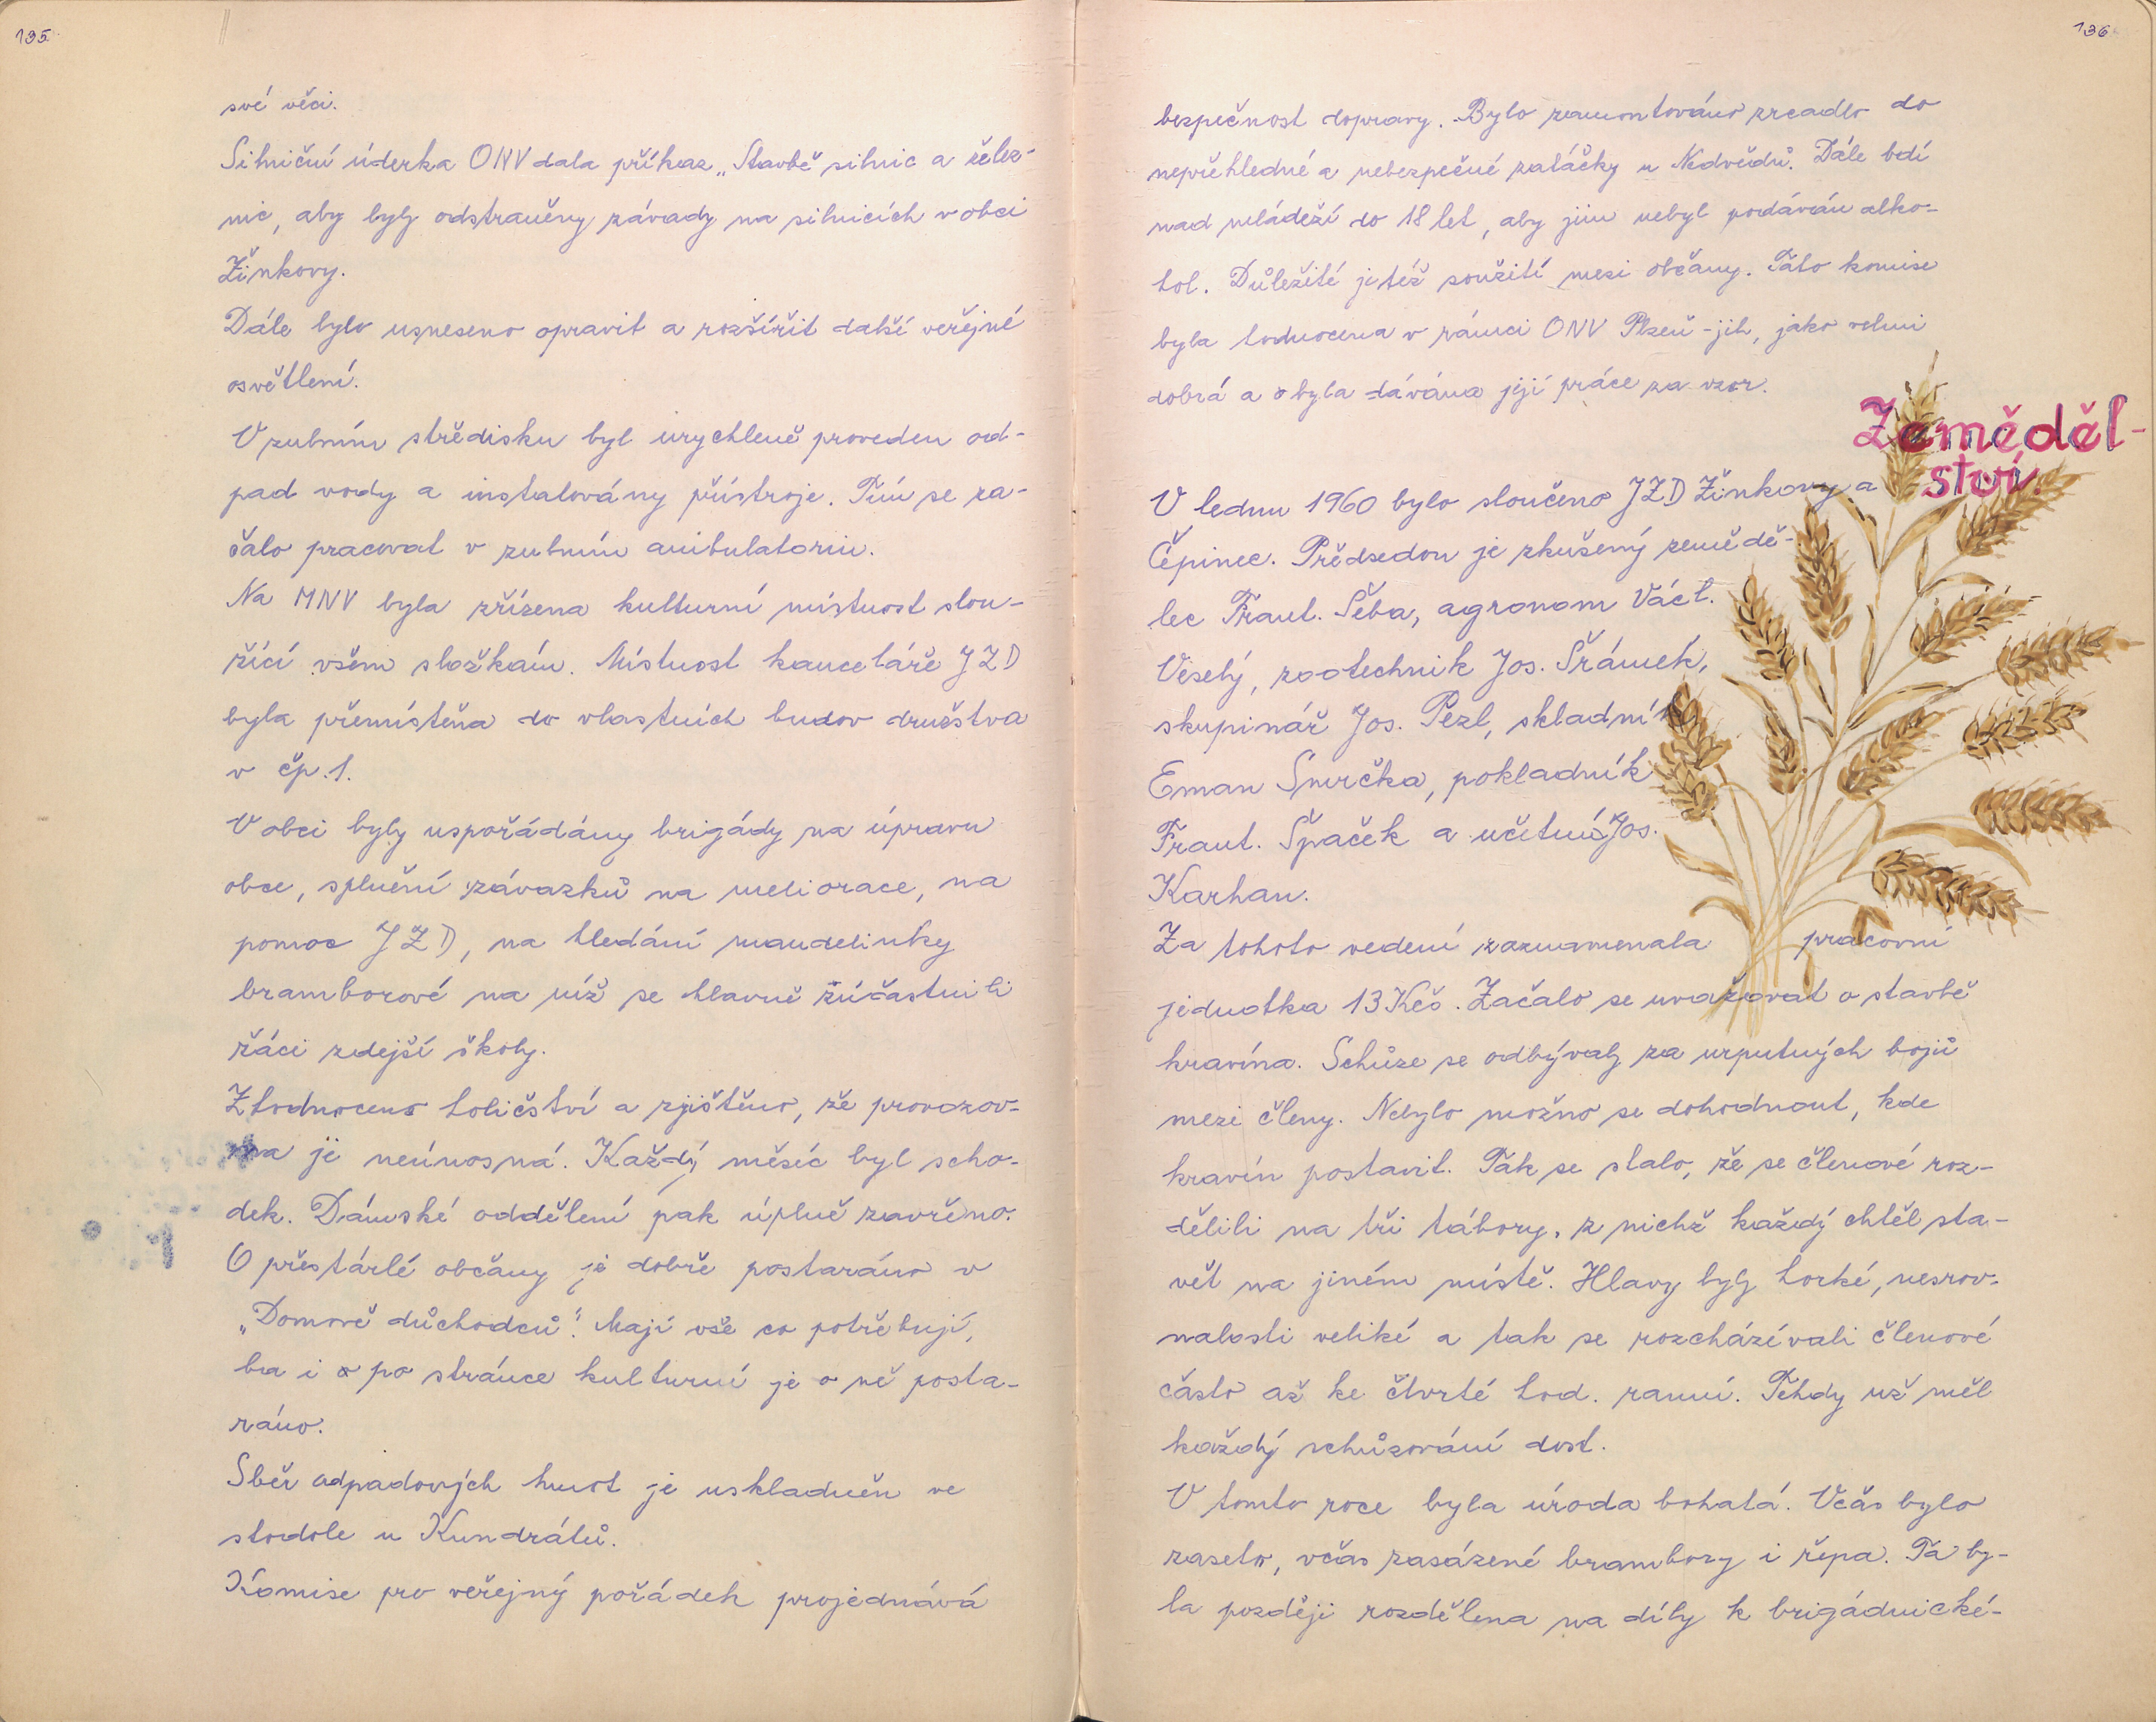 135.
své věci.
Silniční úderka ONV dala příkaz „Stavbě silnic a želez-
nic, aby byly odstraněny závady na silnicích v obci
Žinkovy.
Dále bylo usneseno opravit a rozšířit další veřejné
osvětlení.
V zubním středisku byl urychleně proveden od-
pad vody a instalovány přístroje. Tím se za-
čalo pracovat v zubním ambulatoriu.
Na MNV byla zřízena kulturní místnost slou-
žící všem složkám. Místnost kanceláře JZD
byla přemístěna do vlastních budov družstva
v čp. 1.
V obci byly uspořádány brigády na úpravu
obce, splnění závazků na meliorace, na
pomoc JZD, na hledání mandelinky
bramborové na níž se hlavně zúčastnili
žáci zdejší školy.
Zhodnoceno holičství a zjištěno, že provozov-
na je neúnosná. Každý měsíc byl scho-
dek. Dámské oddělení pak úplně zavřeno.
O přestárlé občany je dobře postaráno v
„Domově důchodců". Mají vše co potřebují,
ba i po stránce kulturní je o ně posta-
ráno.
Sběr odpadových hmot je uskladněn ve
stodole u Kundrátů.
Komise pro veřejný pořádek projednává
136.
bezpečnost dopravy. Bylo zamontováno zrcadlo do
nepřehledné a nebezpečné zatáčky u Nedvědů. Dále bdí
nad mládeží do 18 let, aby jim nebyl podáván alko-
hol. Důležité je též soužití mezi občany. Tato komise
byla hodnocena v rámci ONV Plzeň-jih, jako velmi
dobrá a byla dávána její práce za vzor.
Zeměděl-
ství.
V lednu 1960 bylo sloučeno JZD Žinkovy a
Čepinec. Předsedou je zkušený zemědě-
lec Frant. Šeba, agronom Václ.
Veselý, zootechnik Jos. Šrámek,
skupinář Jos. Pezl, skladník
Eman Smrčka, pokladník
Frant. Špaček a učetní Jos.
Karhan.
Za tohoto vedení zaznamenala pracovní
jednotka 13 Kčs. Začalo se uvažovat o stavbě
kravína. Schůze se odbývaly za urputných bojů
mezi členy. Nebylo možno se dohodnout, kde
kravín postavit. Tak se stalo, že se členové roz-
dělili na tři tábory, z nichž každý chtěl sta-
vět na jiném místě. Hlavy byly horké, nesrov-
nalosti veliké a tak se rozcházívali členové
často až ke čtvrté hod. ranní. Tehdy už měl
každý schůzování dost.
V tomto roce byla úroda bohatá. Včas bylo
zaseto, včas zasázené brambory i řepa. Ta by-
la později rozdělena na díly k brigádnické-